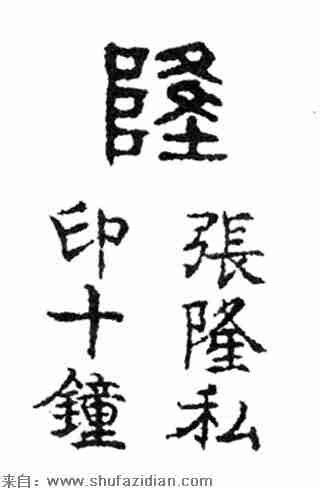 隆
張隆私
印十鐘
来自：www.shufazidian.com